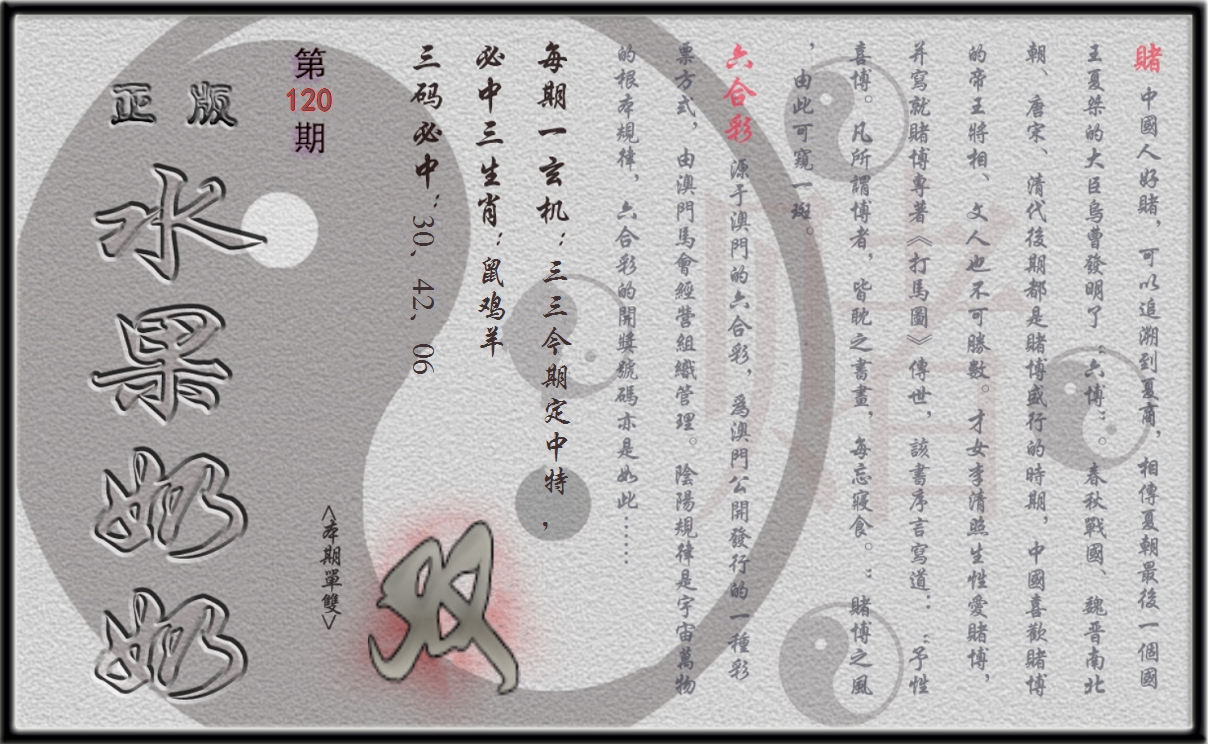 賭 中國人好賭，可以追溯到夏商，相傳夏朝最後一個國
王夏桀的大臣烏曹發明了“六博”。春秋戰國、魏晋南北
朝、唐宋、清代後期都是賭博盛行的時期，中國喜歡賭博
的帝王將相、文人也不可勝數。才女李清照生性愛賭博，
并寫就賭博專著《打馬圖》傳世，該書序言寫道：“予性
喜博。凡所謂博者，皆耽之晝畫，每忘寢食。：賭博之風
，由此可窺一斑。
六合彩 源于澳門的六合彩，爲澳門公開發行的一種彩
票方式，由澳門馬會經營組織管理。陰陽規律是宇宙萬物
的根本規律，六合彩的開獎號碼亦是如此……
每期一玄机：三三今期定中特，
必中三生肖：鼠鸡羊
三码必中：30、42、06
双
<本期單雙>
第
120
期
正版
水果奶奶
赌